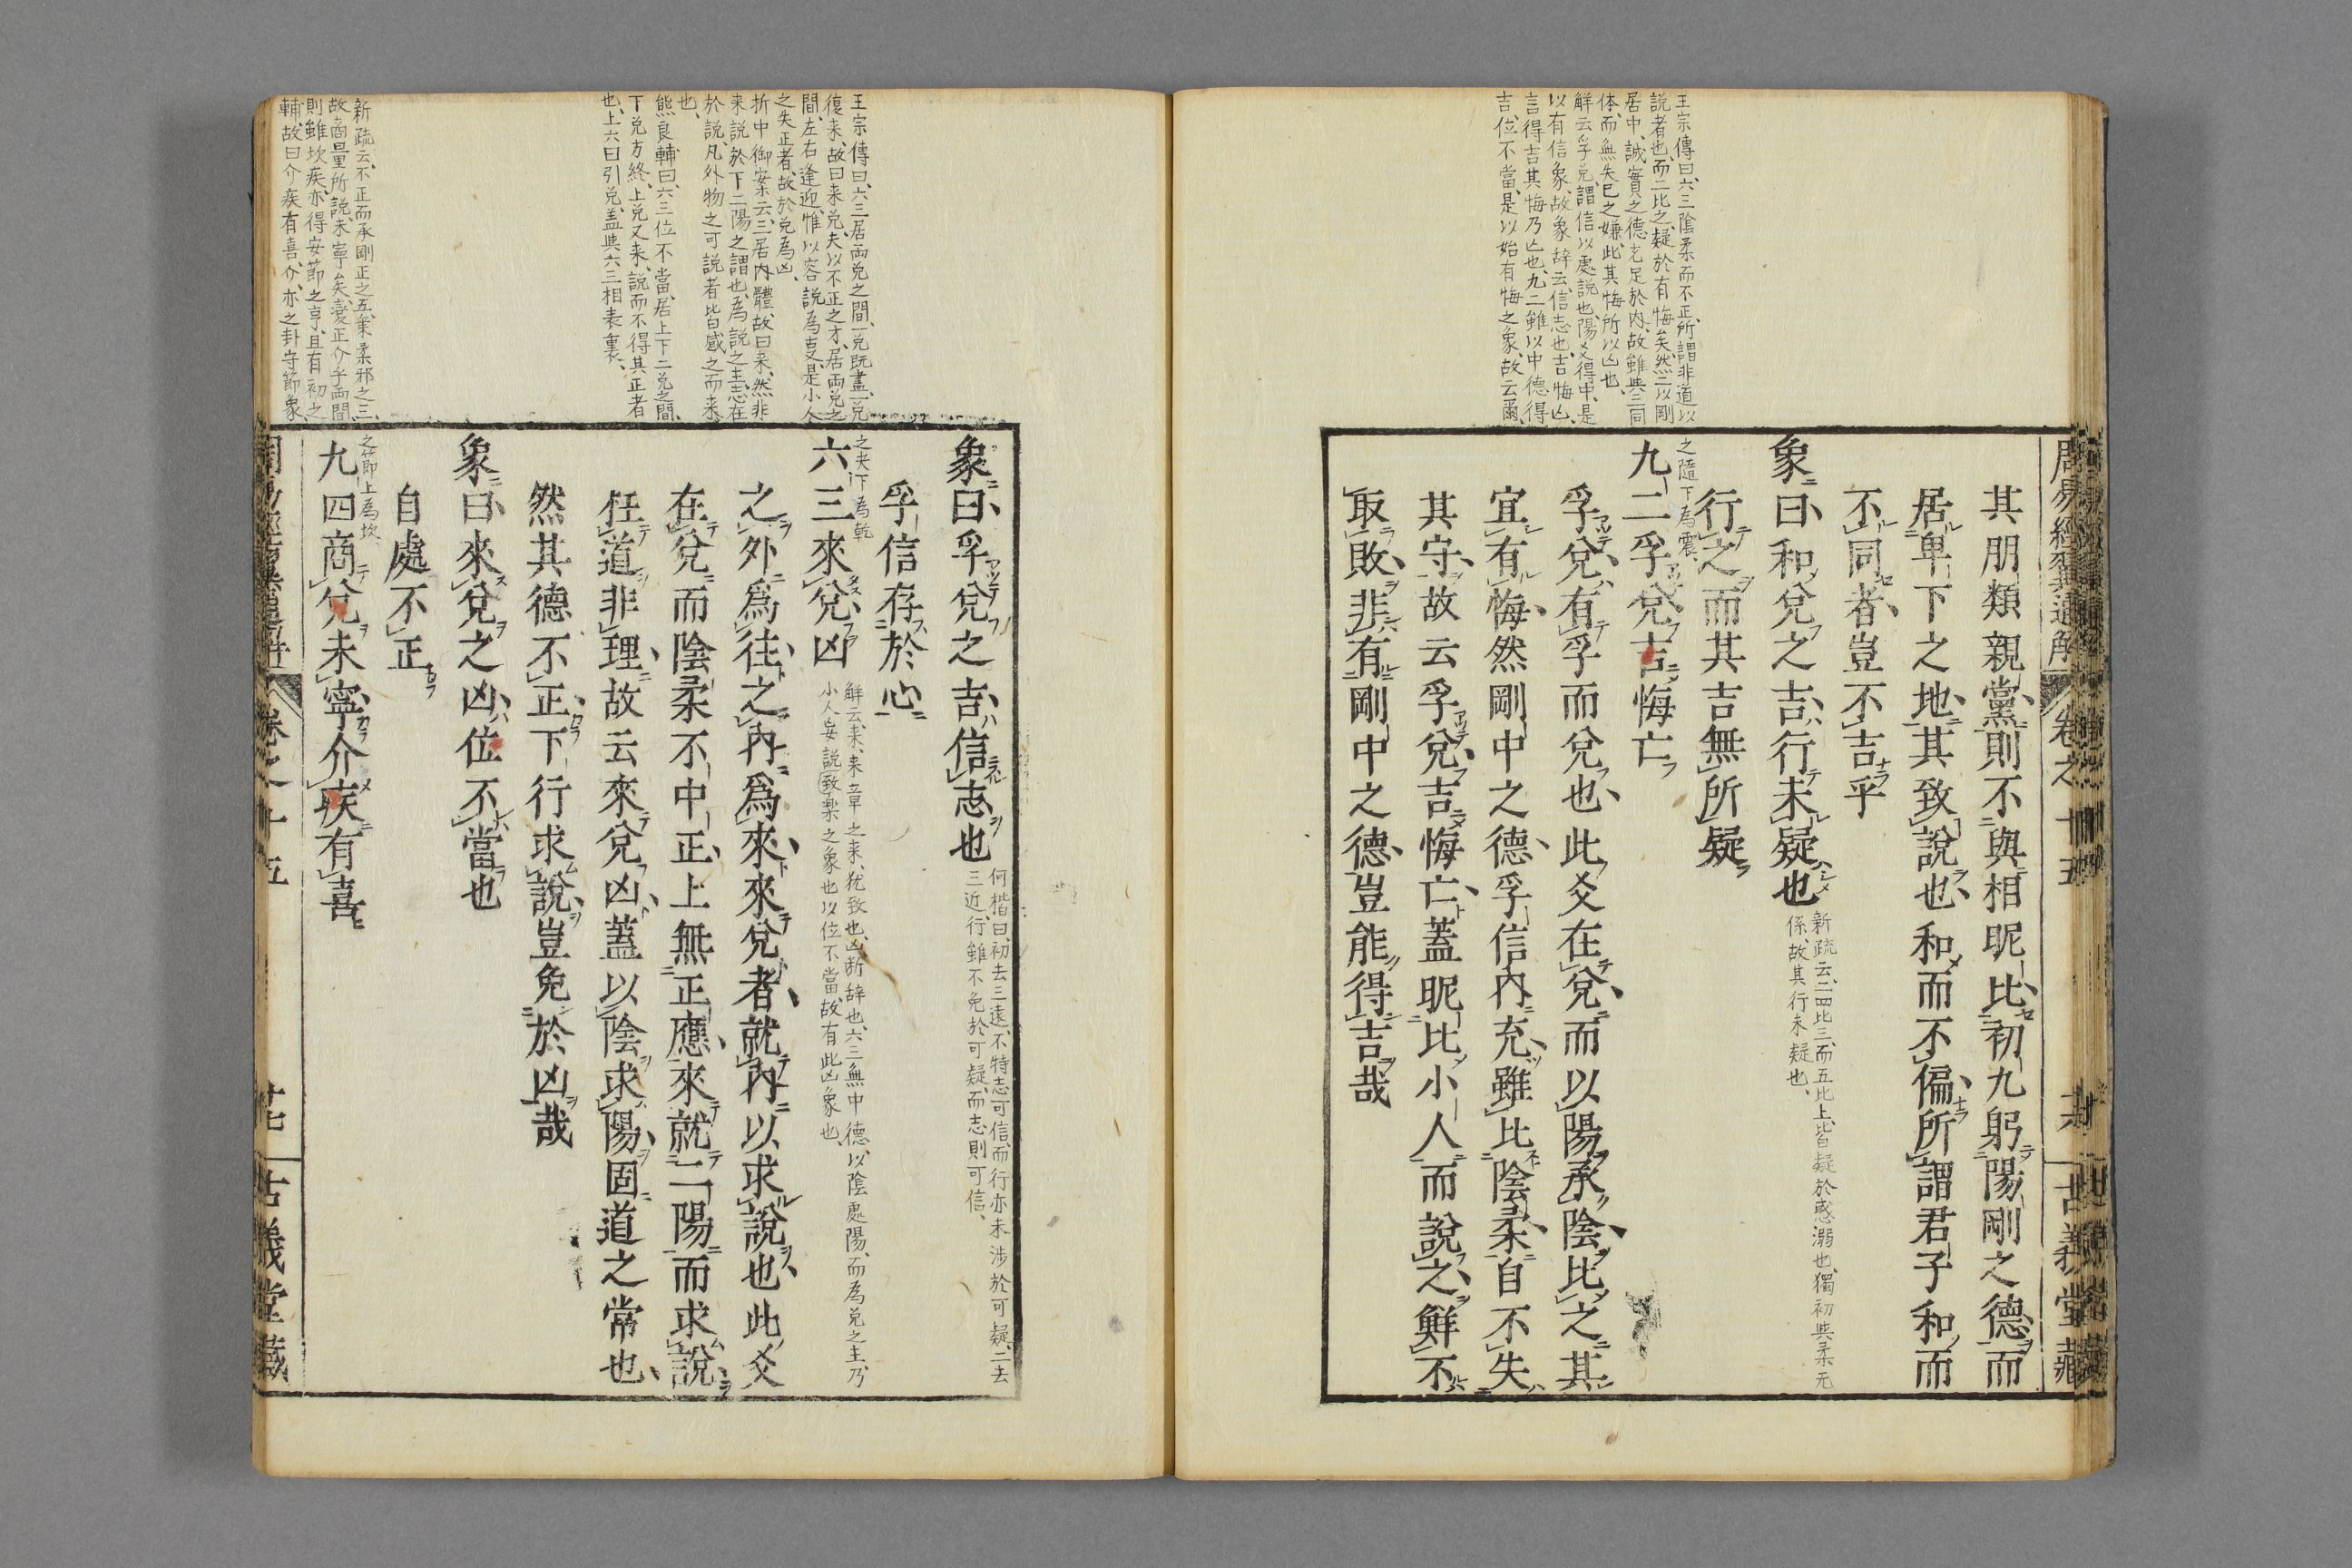 王宗傳曰、六三陰柔而不正、所謂非道以
說者也、而二比之、疑於有悔矣、然二以剛
居中、誠實之德充足於內、故雖與三同
体、而無失已之嫌、此其悔所以亡也、
解云孚兌、謂信以處說也、陽爻得中、是
以有信象、故象辞云、信志也、吉悔亡、
言得吉其悔乃亡也、九二雖以中德得
吉、位不當、是以始有悔之象、故云爾、
周易經翼通解 卷之十五 古義堂藏
其朋類親黨則不與相昵比初九躬陽剛之德而
居卑下之地其致說也和而不偏所謂君子和而
不同者豈不吉乎
象曰和兌之吉行未疑也
新疏云、二四比三、而五比上、皆疑於惑溺也、獨初與柔无
係、故其行未疑也、
行之而其吉無所疑
之隨下為震、
九二孚兌吉悔亡
孚兌有孚而兌也此爻在兌而以陽承陰比之其
宜有悔然剛中之德孚信內充雖比陰柔自不失
其守故云孚兌吉悔亡蓋昵比小人而說之鮮不
取敗非有剛中之德豈能得吉哉
王宗傳曰、六三居兩兌之間、一兌既盡、一兌
復来、故曰来兌、夫以不正之才、居兩兌之
間、左右逢迎、惟以容說為吏、是小人
之失正者、故於兌為凶、
折中御案云、三居内體、故曰来、然非
来說於下二陽之謂也、為說之主、志在
於說、凡外物之可說者、皆感之而来
也、
熊良輔曰、六三位不當、居上下二兌之間、
下兌方終、上兌又来、說而不得其正者
也、上六曰引兌、盖與六三相表裏、
新疏云、不正而承剛正之五、乗柔邪之三、
故商量所說、未寧矣、
則雖坎疾、亦得安節之亨、且有初之
輔、故曰介疾有喜、介、亦之卦守節象、
象曰孚兌之吉信志也
何楷曰、初去三遠、不特志可信、而行亦未涉於可疑、二去
三近、行雖不免於可疑、而志則可信、
孚信存於心
之夬下為乾
六三來兌凶
解云来、来章之来、犹致也、凶断辞也、六三無中德、以陰處陽、而為兌之主、乃
小人妄說致楽之象也、以位不當、故有此凶象也、
之外爲往之內爲來來兌者就內以求說也此爻
在兌而陰柔不中正上無正應來就二陽而求說
枉道非理故云來兌凶蓋以陰求陽固道之常也
然其德不正下行求說豈免於凶哉
象曰來兌之凶位不當也
自處不正
之節上為坎、
九四商兌未寧介疾有喜
卷之十五 古義堂藏